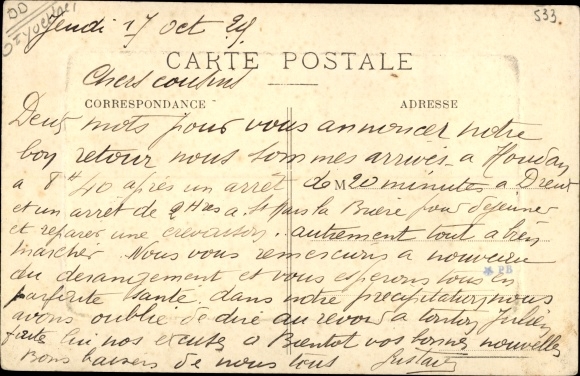 533.
Jeudi 17 Oct 29.
CARTE POSTALE
Chers cousins
CORRESPONDANCE
ADRESSE
Deux mots pour vous annoncer notre
bon retour nous sommes arrivés a Houdan
a 8H40 après un arrêt de M20 minutes a Dreux
et un arrêt de 2 H a St la Bruere pour déjeuner
et réparer une crevaison. autrement tout a bien
marcher. Nous vous remercions a nouveau
du derangement et vous esperons tous en
* PB
parfaite santé. dans notre précipitation nous
avons oublié de dire au revoir a tonton Julien
faite lui nos excuses a Bientot vos bonnes nouvelles
Bons baisers de nous tous Gustave